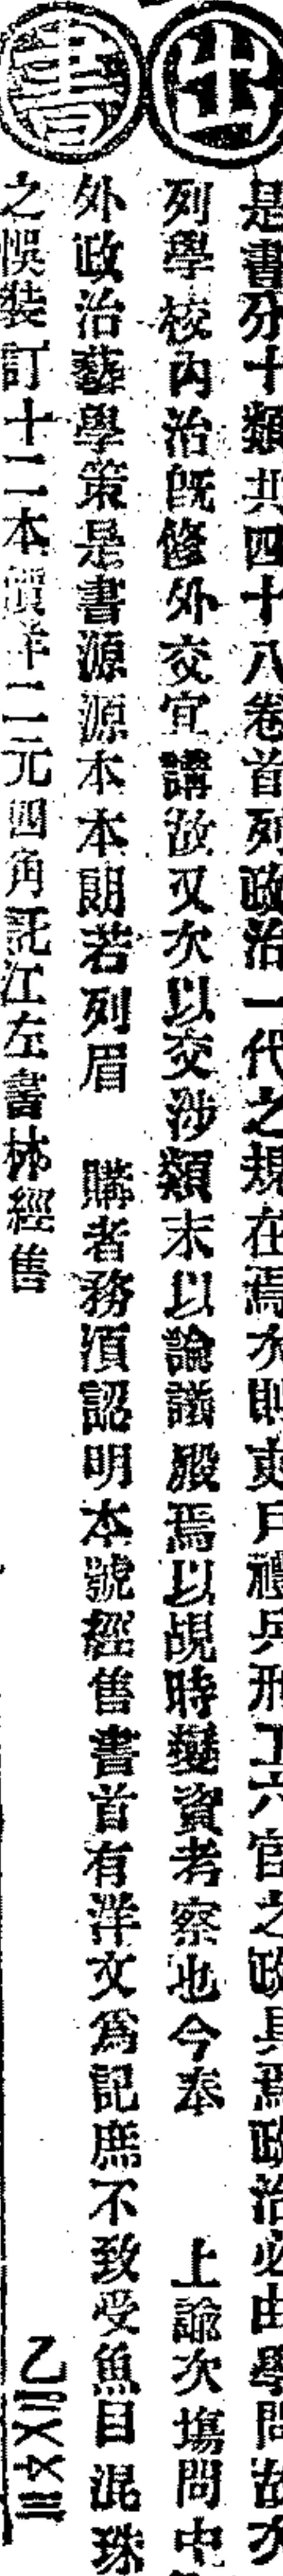 出書
是書分十類共四十八卷首列政治一代之規在焉次則吏戶禮兵刑工六官之政具焉政治必由學問故次
列學校內治既修外交宜講故又次以交涉類末以論議殿焉以覘時變資考察也今奉 上諭次塲問中
外政治藝學策是書源源本本朗若列眉 購者務須認明本號經售書首有洋文爲記庶不致受魚目混珠
之悞裝訂十二本價洋二元四角託江左書林經售